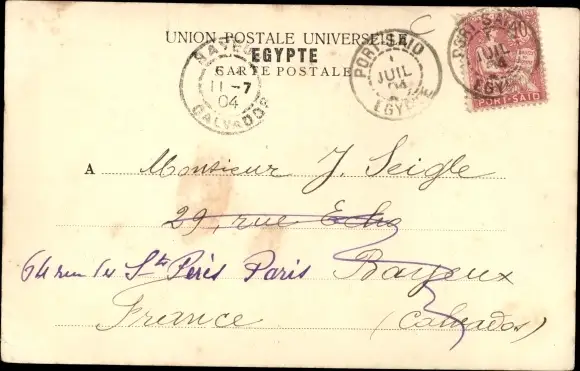 UNION POSTALE UNIVERSELLE
EGYPTE
CARTE POSTALE
BAYEUX
11-7
04
CALVADOS
PORT-SAID
1
JUIL
04
EGYPTE
PORT-SAID
JUIL
04
EGYPTE
10
PORT-SAID
A Monsieur J. Seigle
29, rue Echo
64 rue des Sts Pères Paris Bayeux
France (Calvados)